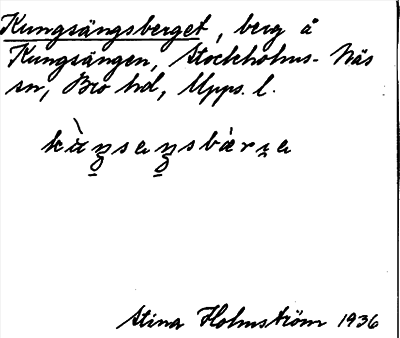 Kungsängsberget, berg å
Kungsängen, Stockholms-Näs
sn, Bro hd, Upps. l.
Stina Holmström 1936